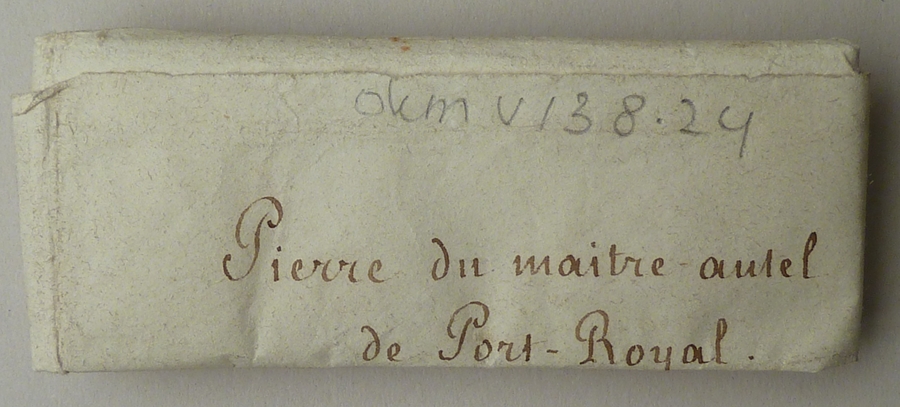 okm v138.24
Pierre du maitre-autel
de Port-Royal.